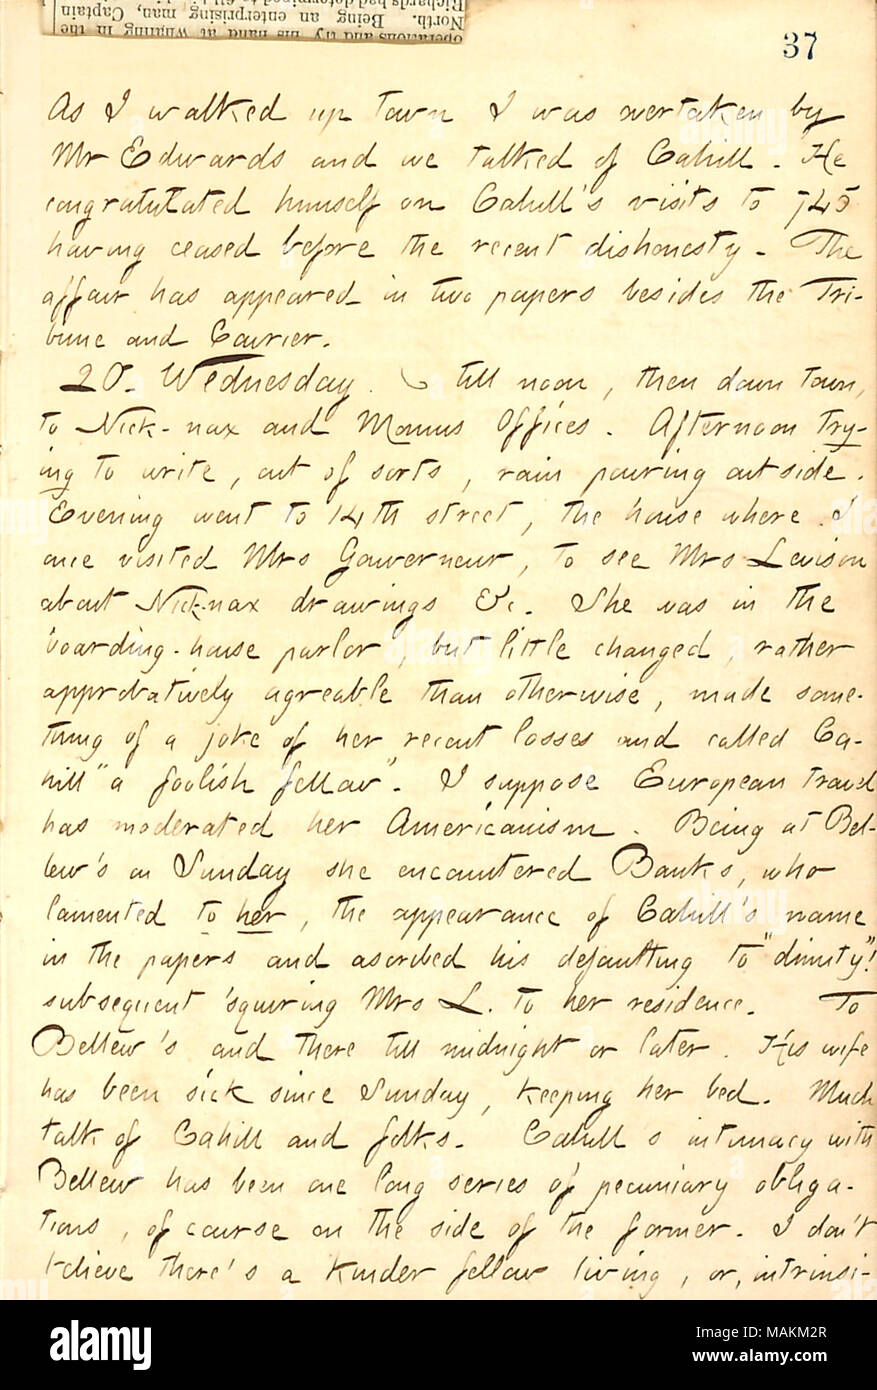 operations and try his hand at whaling in the
North. Being an enterprising man, Captain
Richards had determined to
37
As I walked up town I was overtaken by
Mr Edwards and we talked of Cahill. He
congratutated himself on Cahill's visits to 745
having ceased before the recent dishonesty. The
affair has appeared in two papers besides the Tri-
bune and Courier.
20. Wednesday. till noon, then down town,
to Nick-nax and Momus Offices. Afternoon try-
ing to write, out of sorts, rain pouring outside.
Evening went to 14th street, the house where I
once visited Mrs Gouverneur, to see Mrs Levison
about Nick-nax drawings &c. She was in the
boarding-house parlor, but little changed, rather
approbatively agreable than otherwise, made some-
thing of a joke of her recent losses and called Ca-
hill "a foolish fellow". I suppose European travel
has moderated her Americanism. Being at Bel-
lew's on Sunday she encountered Banks, who
lamented to her, the appearance of Cahill's name
in the papers and ascribed his defaulting to "dimity"!
subsequent 'squiring Mrs L. to her residence. To
Bellew's and there till midnight or later. His wife
has been sick since Sunday, keeping her bed. Much
talk of Cahill and folks. Cahill's intimacy with
Bellew has been one long series of pecuniary obliga-
tions, of course on the side of the former. I don't
believe there's a kinder fellow living, or, intrinsi-
alamy
Image ID: MAKM2R
www.alamy.com